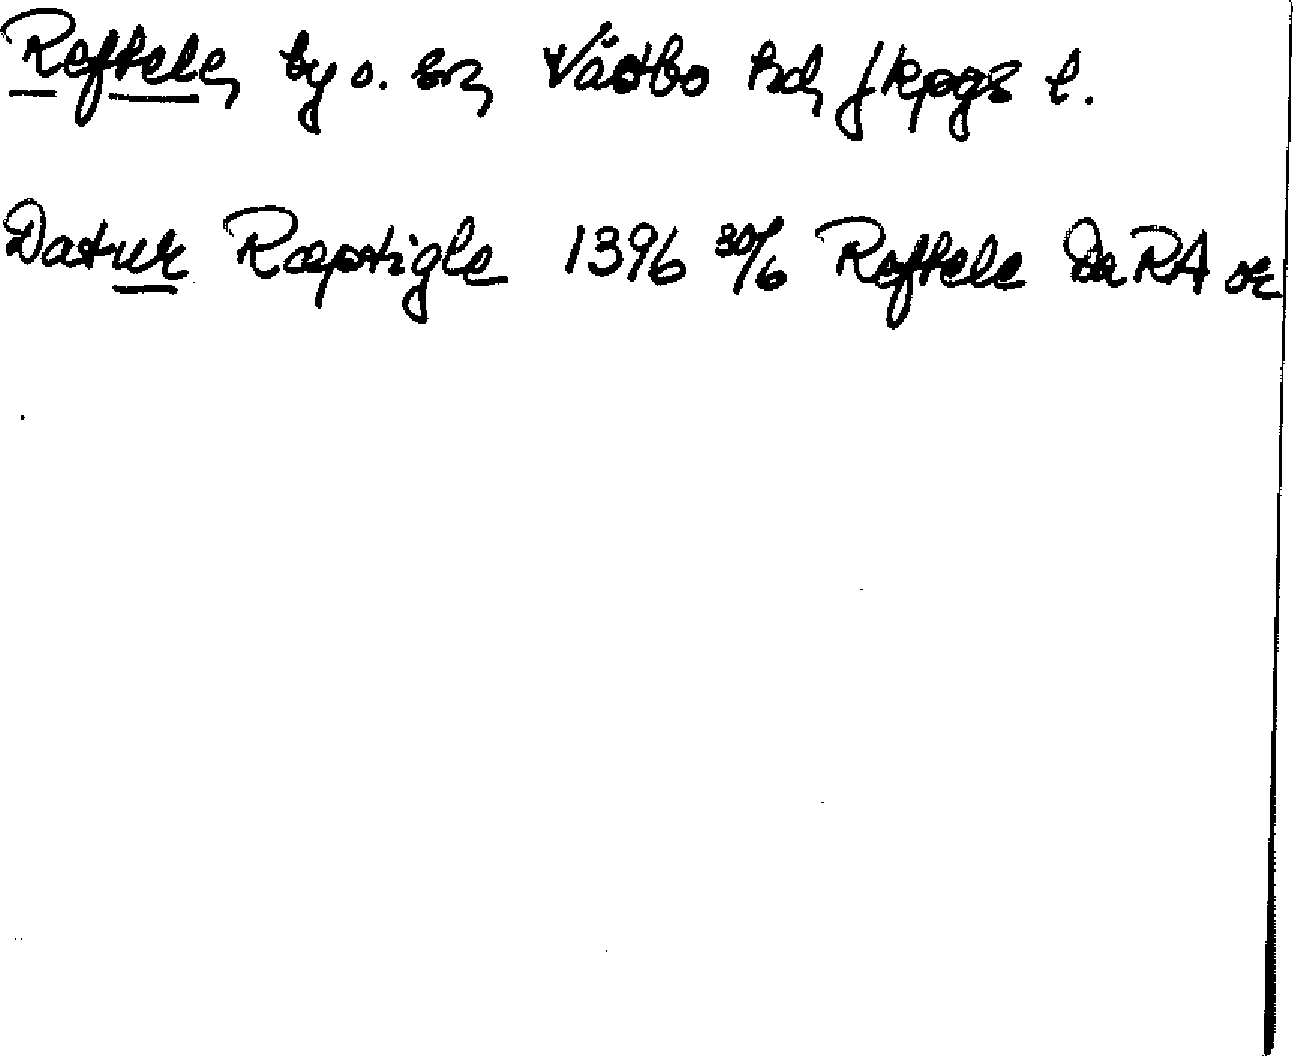 Reftele, by o. sn, Västbo hd, Jkpgs l.
Datur Ræpstigle 1396 30/6 Reftele DaRA or